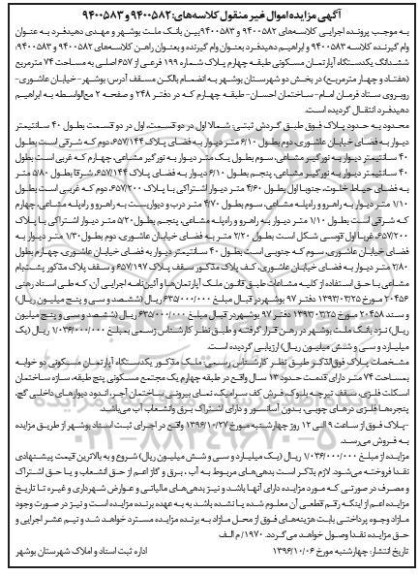 آگهی مزایده اموال غیر منقول کلاسه‌های: ۹۴۰۰۵۸۲ و ۹۴۰۰۵۸۳
به موجب پرونده اجرایی کلاسه‌های ۹۴۰۰۵۸۲ و ۹۴۰۰۵۸۳ بین بانک ملت بوشهر و مهدی دهیدفرد به عنوان
وام گیرنده کلاسه ۹۴۰۰۵۸۳ و ابراهیم دهیدفرد بعنوان وام گیرنده و بعنوان راهن کلاسه‌های ۹۴۰۰۵۸۲ و ۹۴۰۰۵۸۳،
ششدانگ یکدستگاه آپارتمان مسکونی طبقه چهارم پلاک شماره ۱۹۹ فرعی از ۶۵۷ اصلی به مساحت ۷۴ مترمربع
(هفتاد و چهار مترمربع) در بخش دو شهرستان بوشهر به انضمام بالکن مسقف آدرس بوشهر-خیابان عاشوری-
روبروی ستاد فرمان امام-ساختمان احسان-طبقه چهارم که در دفتر ۲۴۸ و صفحه ۲ مع‌الواسطه به ابراهیم
دهیدفرد انتقال گردیده است.
محدود به حدود پلاک فوق طبق گردش ثبتی: شمالا اول در دو قسمت، اول در دو قسمت بطول ۴۰ سانتیمتر
دیوار به فضای خیابان عاشوری، دوم بطول ۶/۱۰ متر دیوار به فضای پلاک ۶۵۷/۱۴۴، دوم که شرقی است بطول
۴۰ سانتیمتر دیوار به نورگیر مشاعی، سوم بطول یک متر دیوار به نورگیر مشاعی، چهارم که غربی است بطول
۴۰ سانتیمتر دیوار به نورگیر مشاعی، پنجم بطول ۶/۱۰ دیوار به فضای پلاک ۶۵۷/۱۴۴، شرقا بطول ۵۸۰ متر
به فضای حیاط خلوت، جنوبا اول بطول ۴/۶۰ متر دیوار اشتراکی با پلاک ۶۵۷/۲۰۰، دوم که غربی است بطول
۱/۱۰ متر دیوار به راهرو و راه‌پله مشاعی، سوم بطول ۴/۷۰ متر درب و دیواریست به راهرو و راه‌پله مشاعی، چهارم
که شرقی است بطول ۱/۱۰ متر دیوار به راهرو و راه‌پله مشاعی، پنجم بطول ۵/۲۰ متر دیوار اشتراکی با پلاک
۶۵۷/۲۰۰، غربا اول قوسی شکل است بطول ۲/۲۰ متر به فضای خیابان عاشوری، دوم بطول ۱/۳۰ متر دیوار به
فضای خیابان عاشوری، سوم که جنوبی است بطول ۴۰ سانتیمتر دیوار به فضای خیابان عاشوری، چهارم بطول
۲/۸۰ متر دیوار به فضای خیابان عاشوری، کف پلاک مذکور سقف پلاک ۶۵۷/۱۹۷ و سقف پلاک مذکور پشت‌بام
مشاعی با حق استفاده از کلیه مشاعات طبق قانون ملک آپارتمان‌ها و آئین‌نامه اجرایی آن، که طی اسناد رهنی
۲۰۴۵۶ مورخ ۱۳۹۳/۰۳/۲۵ دفتر ۹۷ بوشهر در قبال مبلغ ۶۳۵/۰۰۰/۰۰۰ ریال (ششصد و سی و پنج میلیون ریال)
و سند ۲۰۴۵۸ مورخ ۱۳۹۳/۰۳/۲۵ دفتر ۹۷ بوشهر در قبال مبلغ ۶۳۵/۰۰۰/۰۰۰ ریال (ششصد و سی و پنج میلیون
ریال) نزد بانک ملت بوشهر در رهن قرار گرفته و طبق نظر کارشناس رسمی به مبلغ ۱/۰۳۶/۰۰۰/۰۰۰ ریال (یک
میلیارد و سی و شش میلیون ریال) ارزیابی گردیده است.
مشخصات پلاک فوق‌الذکر طبق نظر کارشناس رسمی: ملک مذکور یکدستگاه آپارتمان مسکونی دو خوابه
بمساحت ۷۴ متر دارای قدمت حدود ۱۳ سال واقع در طبقه چهارم یک مجتمع مسکونی پنج طبقه، سازه ساختمان
اسکلت فلزی، سقف تیرچه بلوک، فرش کف سرامیک، نمای بیرونی ساختمان آجر، اندود دیوارهای داخلی گچ،
پنجره‌ها فلزی درهای چوبی، بدون آسانسور و دارای اشتراک برق وانشعاب آب می‌باشد.
-پلاک فوق از ساعت ۹ الی ۱۲ روز چهارشنبه مورخ ۱۳۹۶/۱۰/۲۷ واقع در اجرای ثبت اسناد بوشهر از طریق مزایده
به فروش می‌رسد.
مزایده از مبلغ ۱/۰۳۶/۰۰۰/۰۰۰ ریال (یک میلیارد و سی و شش میلیون ریال) شروع و به بالاترین قیمت پیشنهادی
نقدا فروخته می‌شود. لازم بذکر است بدهی‌های مربوط به آب، برق و گاز اعم از حق انشعاب و یا حق اشتراک
و مصرف در صورتی که مورد مزایده دارای آنها باشد و نیز بدهی‌های مالیاتی و عوارض شهرداری و غیره تا تاریخ
مزایده اعم از اینکه رقم قطعی آن معلوم شده یا نشده باشد به عهده برنده مزایده است و نیز در صورت وجود
مازاد وجوه پرداختی بابت هزینه‌های فوق از محل مازاد به برنده مزایده مسترد خواهد شد و نیم عشر اجرایی و
حق مزایده نقدا وصول خواهد می‌گردد. ۱۹۷۰/ م الف
تاریخ انتشار: چهارشنبه مورخ ۱۳۹۶/۱۰/۰۶
اداره ثبت اسناد و املاک شهرستان بوشهر
۰۲۱-۸۸۳۴۹۶۷۰-۵